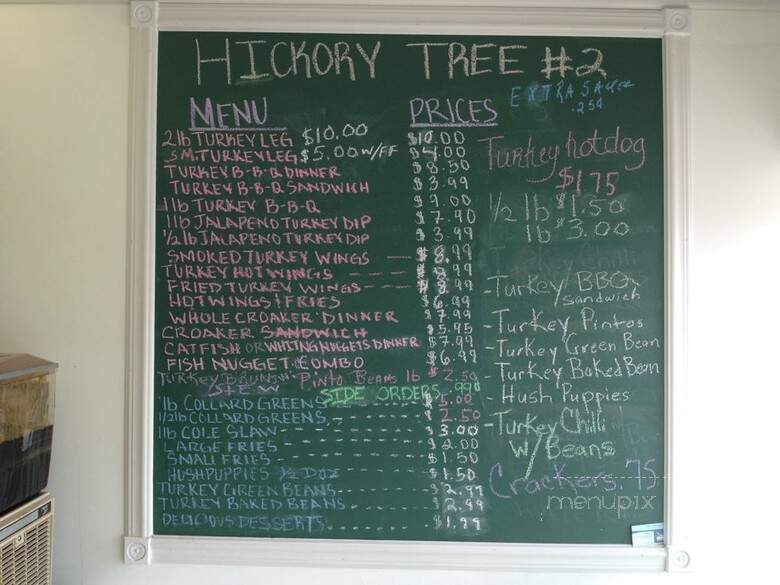 HICKORY TREE #2
EXTRA SAUCE
.25¢
MENU PRICES
2 lb TURKEY LEG $10.00 $10.00
SM. TURKEY LEG $5.00 W/FF $4.00
TURKEY B-B-Q DINNER $8.50
TURKEY B-B-Q SANDWICH $3.99
1 lb TURKEY B-B-Q $9.00
1 lb JALAPENO TURKEY DIP $7.90
1/2 lb JALAPENO TURKEY DIP $3.99
SMOKED TURKEY WINGS $8.99
TURKEY HOT WINGS
FRIED TURKEY WINGS $8.99
HOT WINGS & FRIES $6.99
WHOLE CROAKER DINNER $7.99
CROAKER SANDWICH $5.95
CATFISH OR WHITING NUGGETS DINNER $7.99
FISH NUGGET COMBO $6.99
TURKEY STEW PINTO BEANS lb $2.50
SIDE ORDERS .99¢
1 lb COLLARD GREENS $5.00
1/2 lb COLLARD GREENS $2.50
1 lb COLE SLAW $3.00
LARGE FRIES $2.00
SMALL FRIES $1.50
HUSHPUPPIES 1/2 DOZ $1.50
TURKEY GREEN BEANS $2.99
TURKEY BAKED BEANS $2.99
DELICIOUS DESSERTS $1.99
Turkey hotdog
$1.75
1/2 lb $1.50
lb $3.00
Turkey Chili
- Turkey BBQ
Sandwich
- Turkey Pintos
- Turkey Green Bean
- Turkey Baked Bean
- Hush Puppies
- Turkey Chili
W/ Beans
Crackers .75
menupix